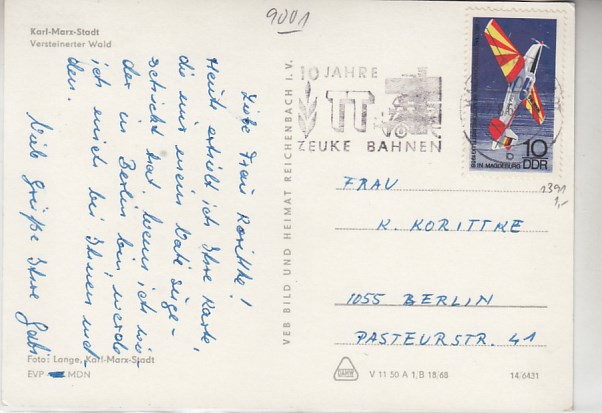 9001
Karl-Marx-Stadt
Versteinerter Wald
Liebe Frau Korittke!
Heute erhielt ich Ihre Karte,
die mir mein Vati zuge-
schickt hat. Wenn ich wie-
der in Berlin bin, werde
ich mich bei Ihnen mel-
den.
Viele Grüße Ihre Gabi
Foto: Lange, Karl-Marx-Stadt
EVP MDN
VEB BILD UND HEIMAT REICHENBACH I. V.
10 JAHRE
TT
ZEUKE BAHNEN
10
DDR
IN MAGDEBURG
1391
1,-
FRAU
K. KORITTKE
1055 BERLIN
PASTEURSTR. 41
V 11 50 A 1, B 18/68
14/6431